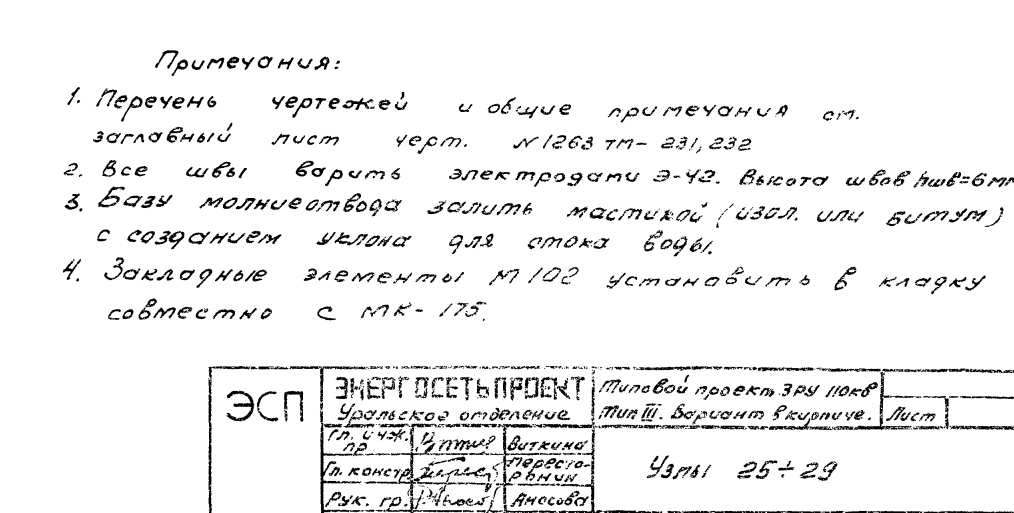 Примечания:
1. Перечень чертежей и общие примечания см.
заглавный лист черт. N1263 тм-231,232
2. Все швы варить электродами Э-42. Высота швов hшв=6мм
3. Базу молниеотвода залить мастикой (изол. или битум)
с созданием уклона для стока воды.
4. Закладные элементы М102 установить в кладку
совместно с МК-175.
ЭСП
ЭНЕРГОСЕТЬПРОЕКТ
Уральское отделение
Типовой проект ЗРУ 110кв
Тип III. Вариант в кирпиче. Лист
Гл. инж. пр Виткина
Гл. констр.
Рук. гр. Аносова
Узлы 25÷29